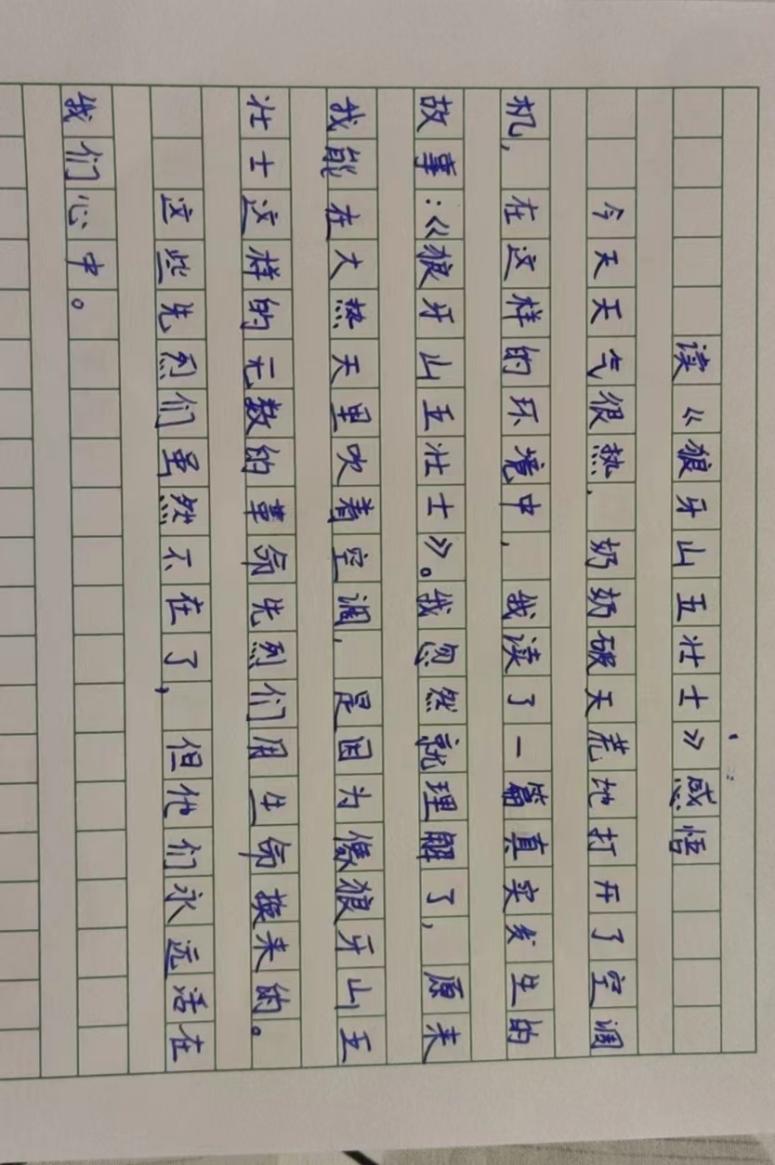 读《狼牙山五壮士》感悟
今天天气很热，奶奶破天荒地打开了空调
机，在这样的环境中，我读了一篇真实发生的
故事：《狼牙山五壮士》。我忽然就理解了，原来
我能在大热天里吹着空调，是因为像狼牙山五
壮士这样的无数的革命先烈们用生命换来的。
这些先烈们虽然不在了，但他们永远活在
我们心中。